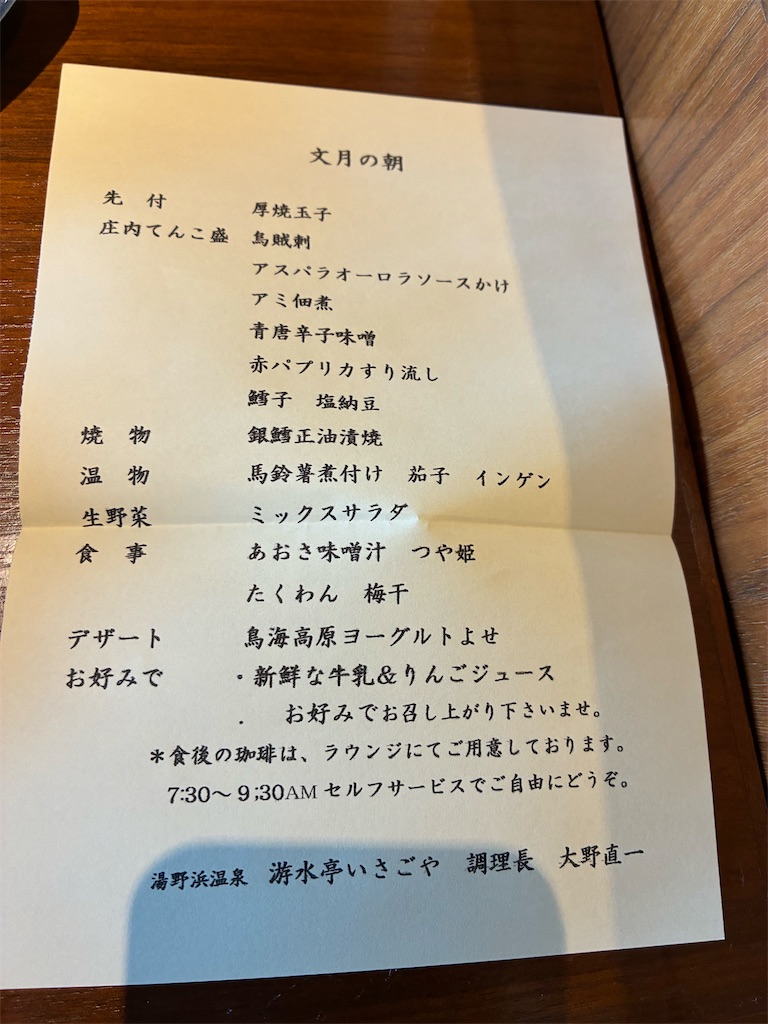 文月の朝
先 付 厚焼玉子
庄内てんこ盛 烏賊刺
アスパラオーロラソースかけ
アミ佃煮
青唐辛子味噌
赤パプリカすり流し
鱈子 塩納豆
焼 物 銀鱈正油漬焼
温 物 馬鈴薯煮付け 茄子 インゲン
生野菜 ミックスサラダ
食 事 あおさ味噌汁 つや姫
たくわん 梅干
デザート 鳥海高原ヨーグルトよせ
お好みで ・新鮮な牛乳&りんごジュース
． お好みでお召し上がり下さいませ。
*食後の珈琲は、ラウンジにてご用意しております。
7:30～9;30AMセルフサービスでご自由にどうぞ。
湯野浜温泉 游水亭いさごや 調理長 大野直一